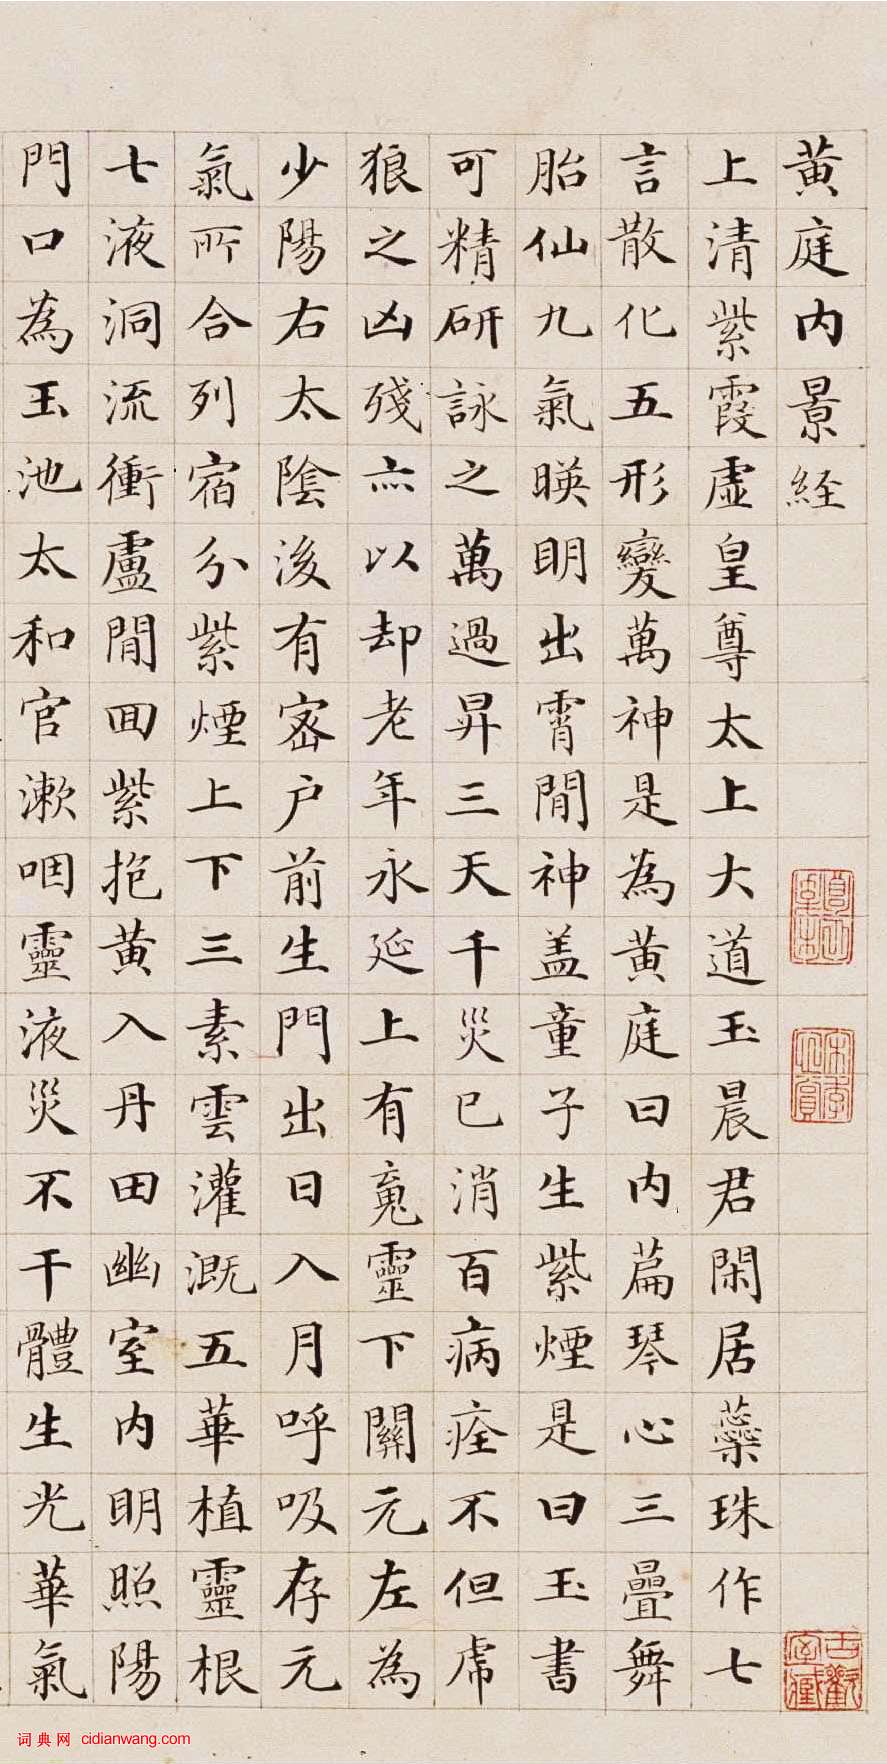 黄庭内景経
上清紫霞虚皇尊太上大道玉晨君閑居蘂珠作七
言散化五形變萬神是為黄庭曰内篇琴心三疊舞
胎仙九氣暎明出霄間神盖童子生紫煙是曰玉書
可精研詠之萬過昇三天千災已消百病痊不但虎
狼之凶殘亦以却老年永延上有䰟靈下關元左為
少陽右太陰後有密户前生門出日入月呼吸存元
氣所合列宿分紫煙上下三素雲灌溉五華植靈根
七液洞流衝盧間回紫抱黄入丹田幽室内明照陽
門口為玉池太和官漱咽靈液災不干體生光華氣
词典网 cidianwang.com